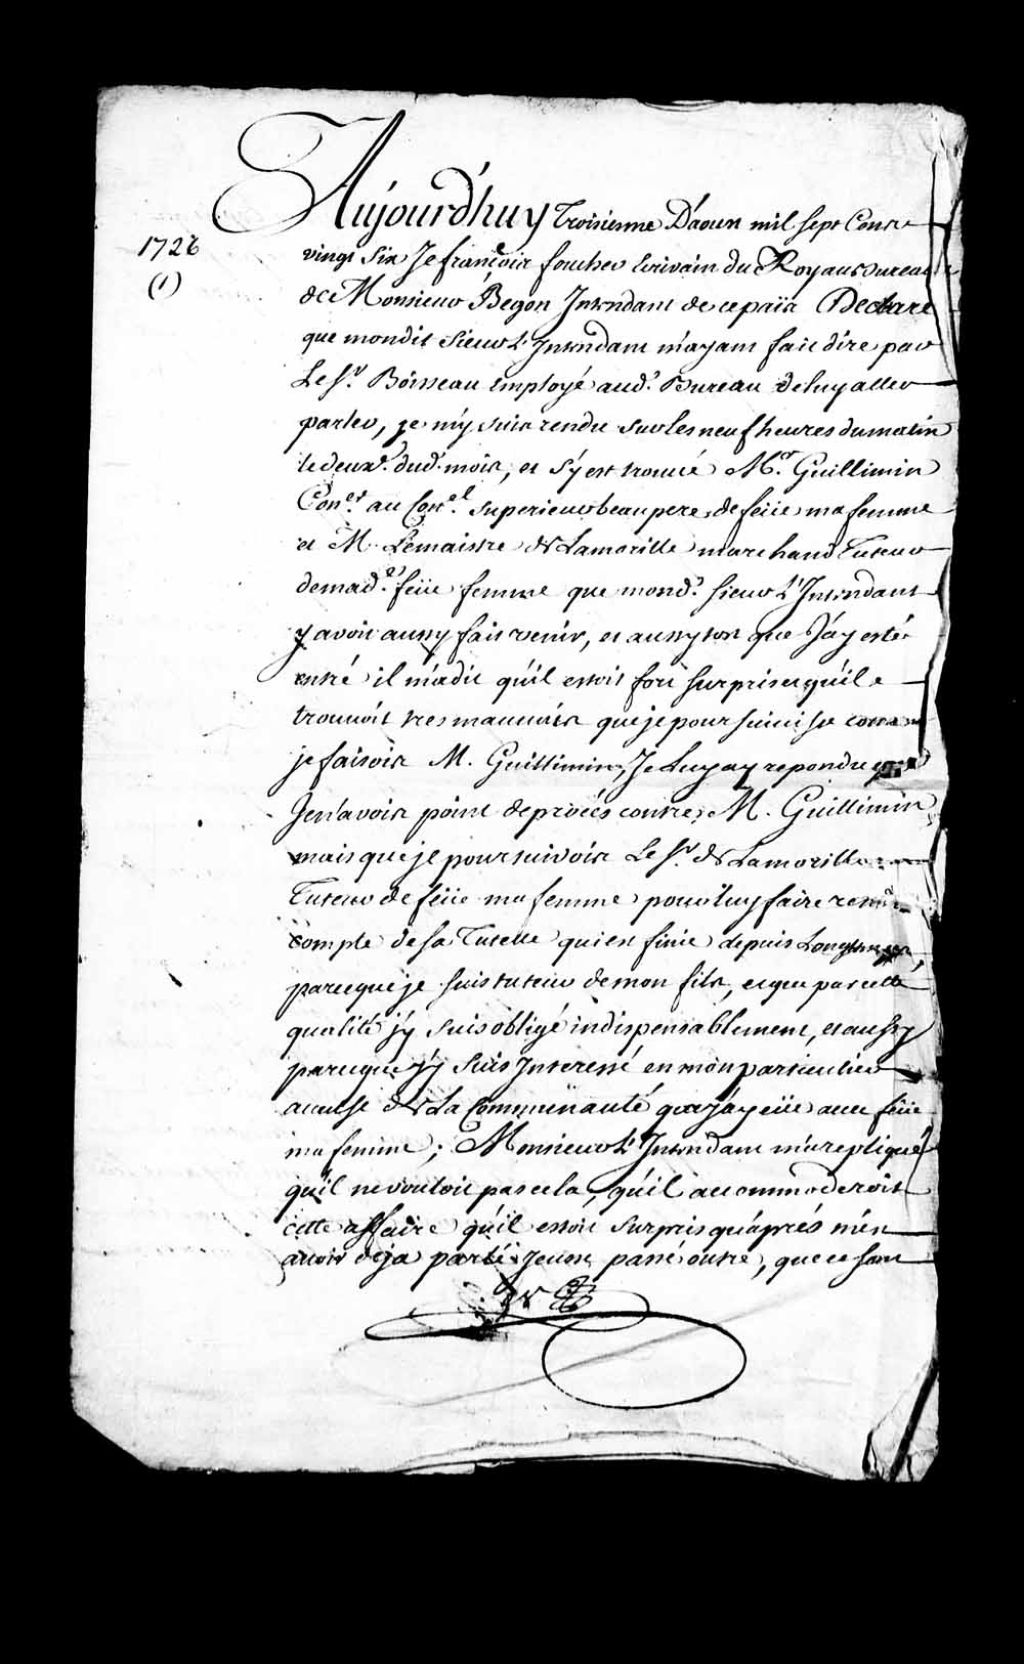 Aujourd'huy troisieme D'aoust mil sept Cens
1726
vingt Six Je françois foucher Ecrivain du Roy au Bureau
(1)
de Monsieur Bégon Intendant de ce païs Declare
que mondit Sieur L'Intendant m'ayant fait dire par
Le Sr. Boisseau Employé aud. Bureau de luy aller
parler, je m'y suis rendu sur les neuf heures du matin
le deuxe. dud. mois, et s'y est trouvé Mr. Guillimin
Coner. au Conel. superieur beaupere de feüe ma femme
et M. Lemaistre de Lamorille marchand Tuteur
de mad.e feüe femme que mond. Sieur L'Intendant
y avoit aussy fait venir, et aussytost que J'ay esté
entré il m'a dit qu'il estoit fort surpris et qu'il
trouvoit tres mauvais que je poursuivisse comme
je faisois M. Guillimin, Je Luy ay repondu que
Je n'avois point de procés contre M. Guillimin
mais que je poursuivois Le Sr. de Lamorille
Tuteur de feüe ma femme pour luy faire rendre
compte de sa Tutelle qui est finie depuis Longtemps,
parce que je suis tuteur de mon fils, et que par cette
qualité j'y suis obligé indispensablement, et aussy
parce que j'y suis Interessé en mon particulier
a cause de La Communauté que j'ay eüe avec feüe
ma femme; Monsieur L'Intendant m'a repliqué
qu'il ne vouloit pas cela, qu'il accommoderoit
cette affaire qu'il estoit surpris qu'aprés m'en
avoir deja parlé j'eusse passé outre, que ce sont